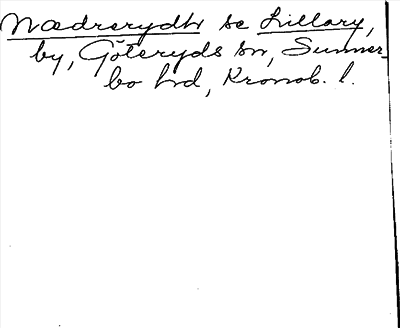 Nædrerydhr se Lillary,
by, Göteryds sn, Sunner-
bo hd, Kronob. l.